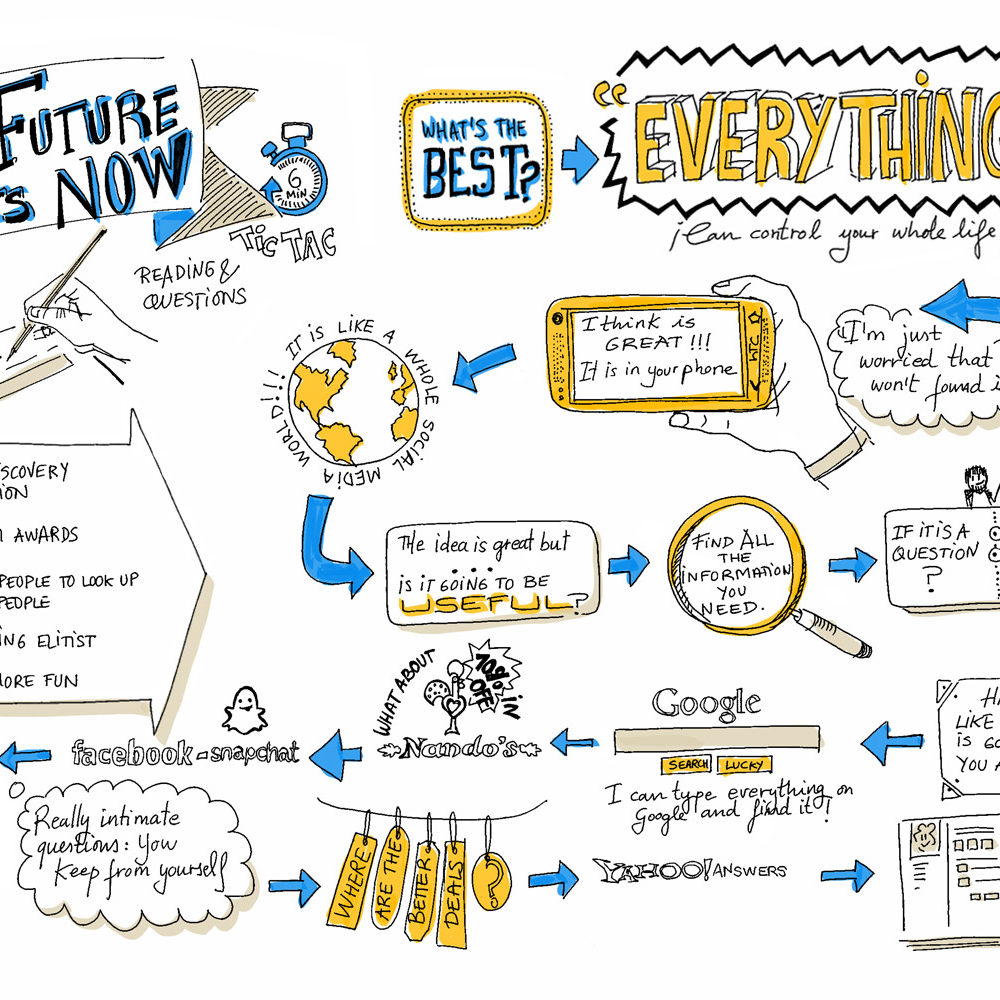 FUTURE
IS NOW
6
MIN
TIC TAC
READING &
QUESTIONS
WHAT'S THE
BEST?
“EVERYTHING
i Can control your whole life
I'm just
worried that
won't found i
I think is
GREAT!!!
It is in your phone
HTC
IT IS LIKE A WHOLE SOCIAL MEDIA WORLD!!!
SCOVERY
ION
AWARDS
PEOPLE TO LOOK UP
PEOPLE
ING ELITIST
ORE FUN
The idea is great but
...
is it GOING TO BE
USEFUL?
FIND ALL
THE
INFORMATION
YOU
NEED.
IF IT IS A
QUESTION
?
HA
LIKE
IS GO
YOU A
Google
SEARCH LUCKY
I can type everything on
Google and find it!
WHAT ABOUT
Nando's
10% IN
OFF
facebook - snapchat
Really intimate
questions: You
Keep from yourself
WHERE
ARE THE
BETTER
DEALS
?
YAHOO! ANSWERS